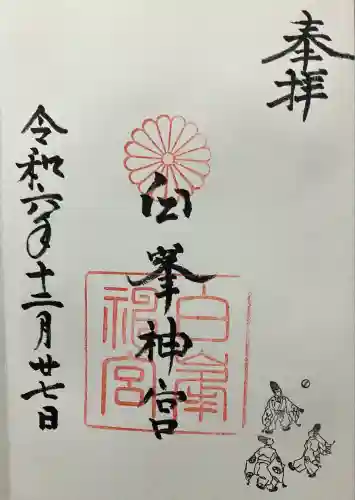 奉拝
白峯神宮
白峯
神宮
令和六年十二月廿七日